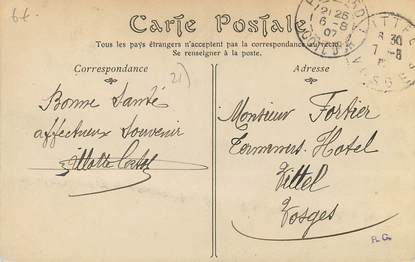 66
Carte Postale
Tous les pays étrangers n'acceptent pas la correspondance au recto.
Se renseigner à la poste.
Correspondance
Adresse
21)
21 25
6-8
07
8 30
7 -8
VOSGES
Bonne Santé
affectueux Souvenir
Monsieur Fortier
Terminus-Hotel
Vittel
Vosges
R.G.